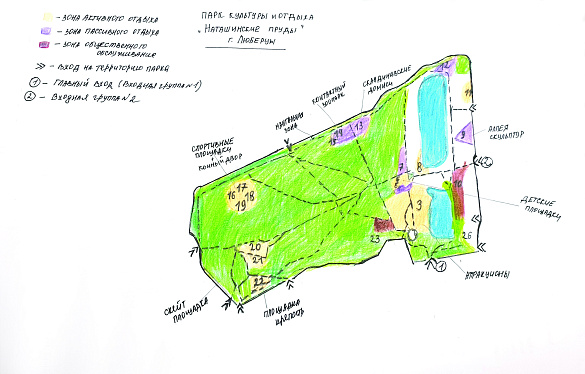 - ЗОНА АКТИВНОГО ОТДЫХА
- ЗОНА ПАССИВНОГО ОТДЫХА
- ЗОНА ОБЩЕСТВЕННОГО
ОБСЛУЖИВАНИЯ
- ВХОД НА ТЕРРИТОРИЮ ПАРКА
1 - ГЛАВНЫЙ ВХОД (ВХОДНАЯ ГРУППА №1)
2 - ВХОДНАЯ ГРУППА №2
ПАРК КУЛЬТУРЫ И ОТДЫХА
"НАТАШИНСКИЕ ПРУДЫ"
Г. ЛЮБЕРЦЫ
СКАНДИНАВСКИЕ
ДОМИКИ
КОНТАКТНЫЙ
ЗООПАРК
ЗОНА
СПОРТИВНЫЕ
ПЛОЩАДКИ
КОННЫЙ ДВОР
АЛЛЕЯ
СКУЛЬПТУР
ДЕТСКИЕ
ПЛОЩАДКИ
АТТРАКЦИОНЫ
СКЕЙТ
ПЛОЩАДКА
ПЛОЩАДКА
13
9
7
8
2
10
3
16
17
18
19
20
21
22
23
26
1